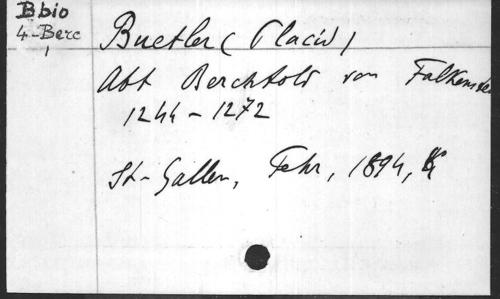 Bbio
4-Berc
1
Buetler (Placid)
Abt Berchtold von Falkenste
1244-1272
St-Gallen, Fehr, 1894,